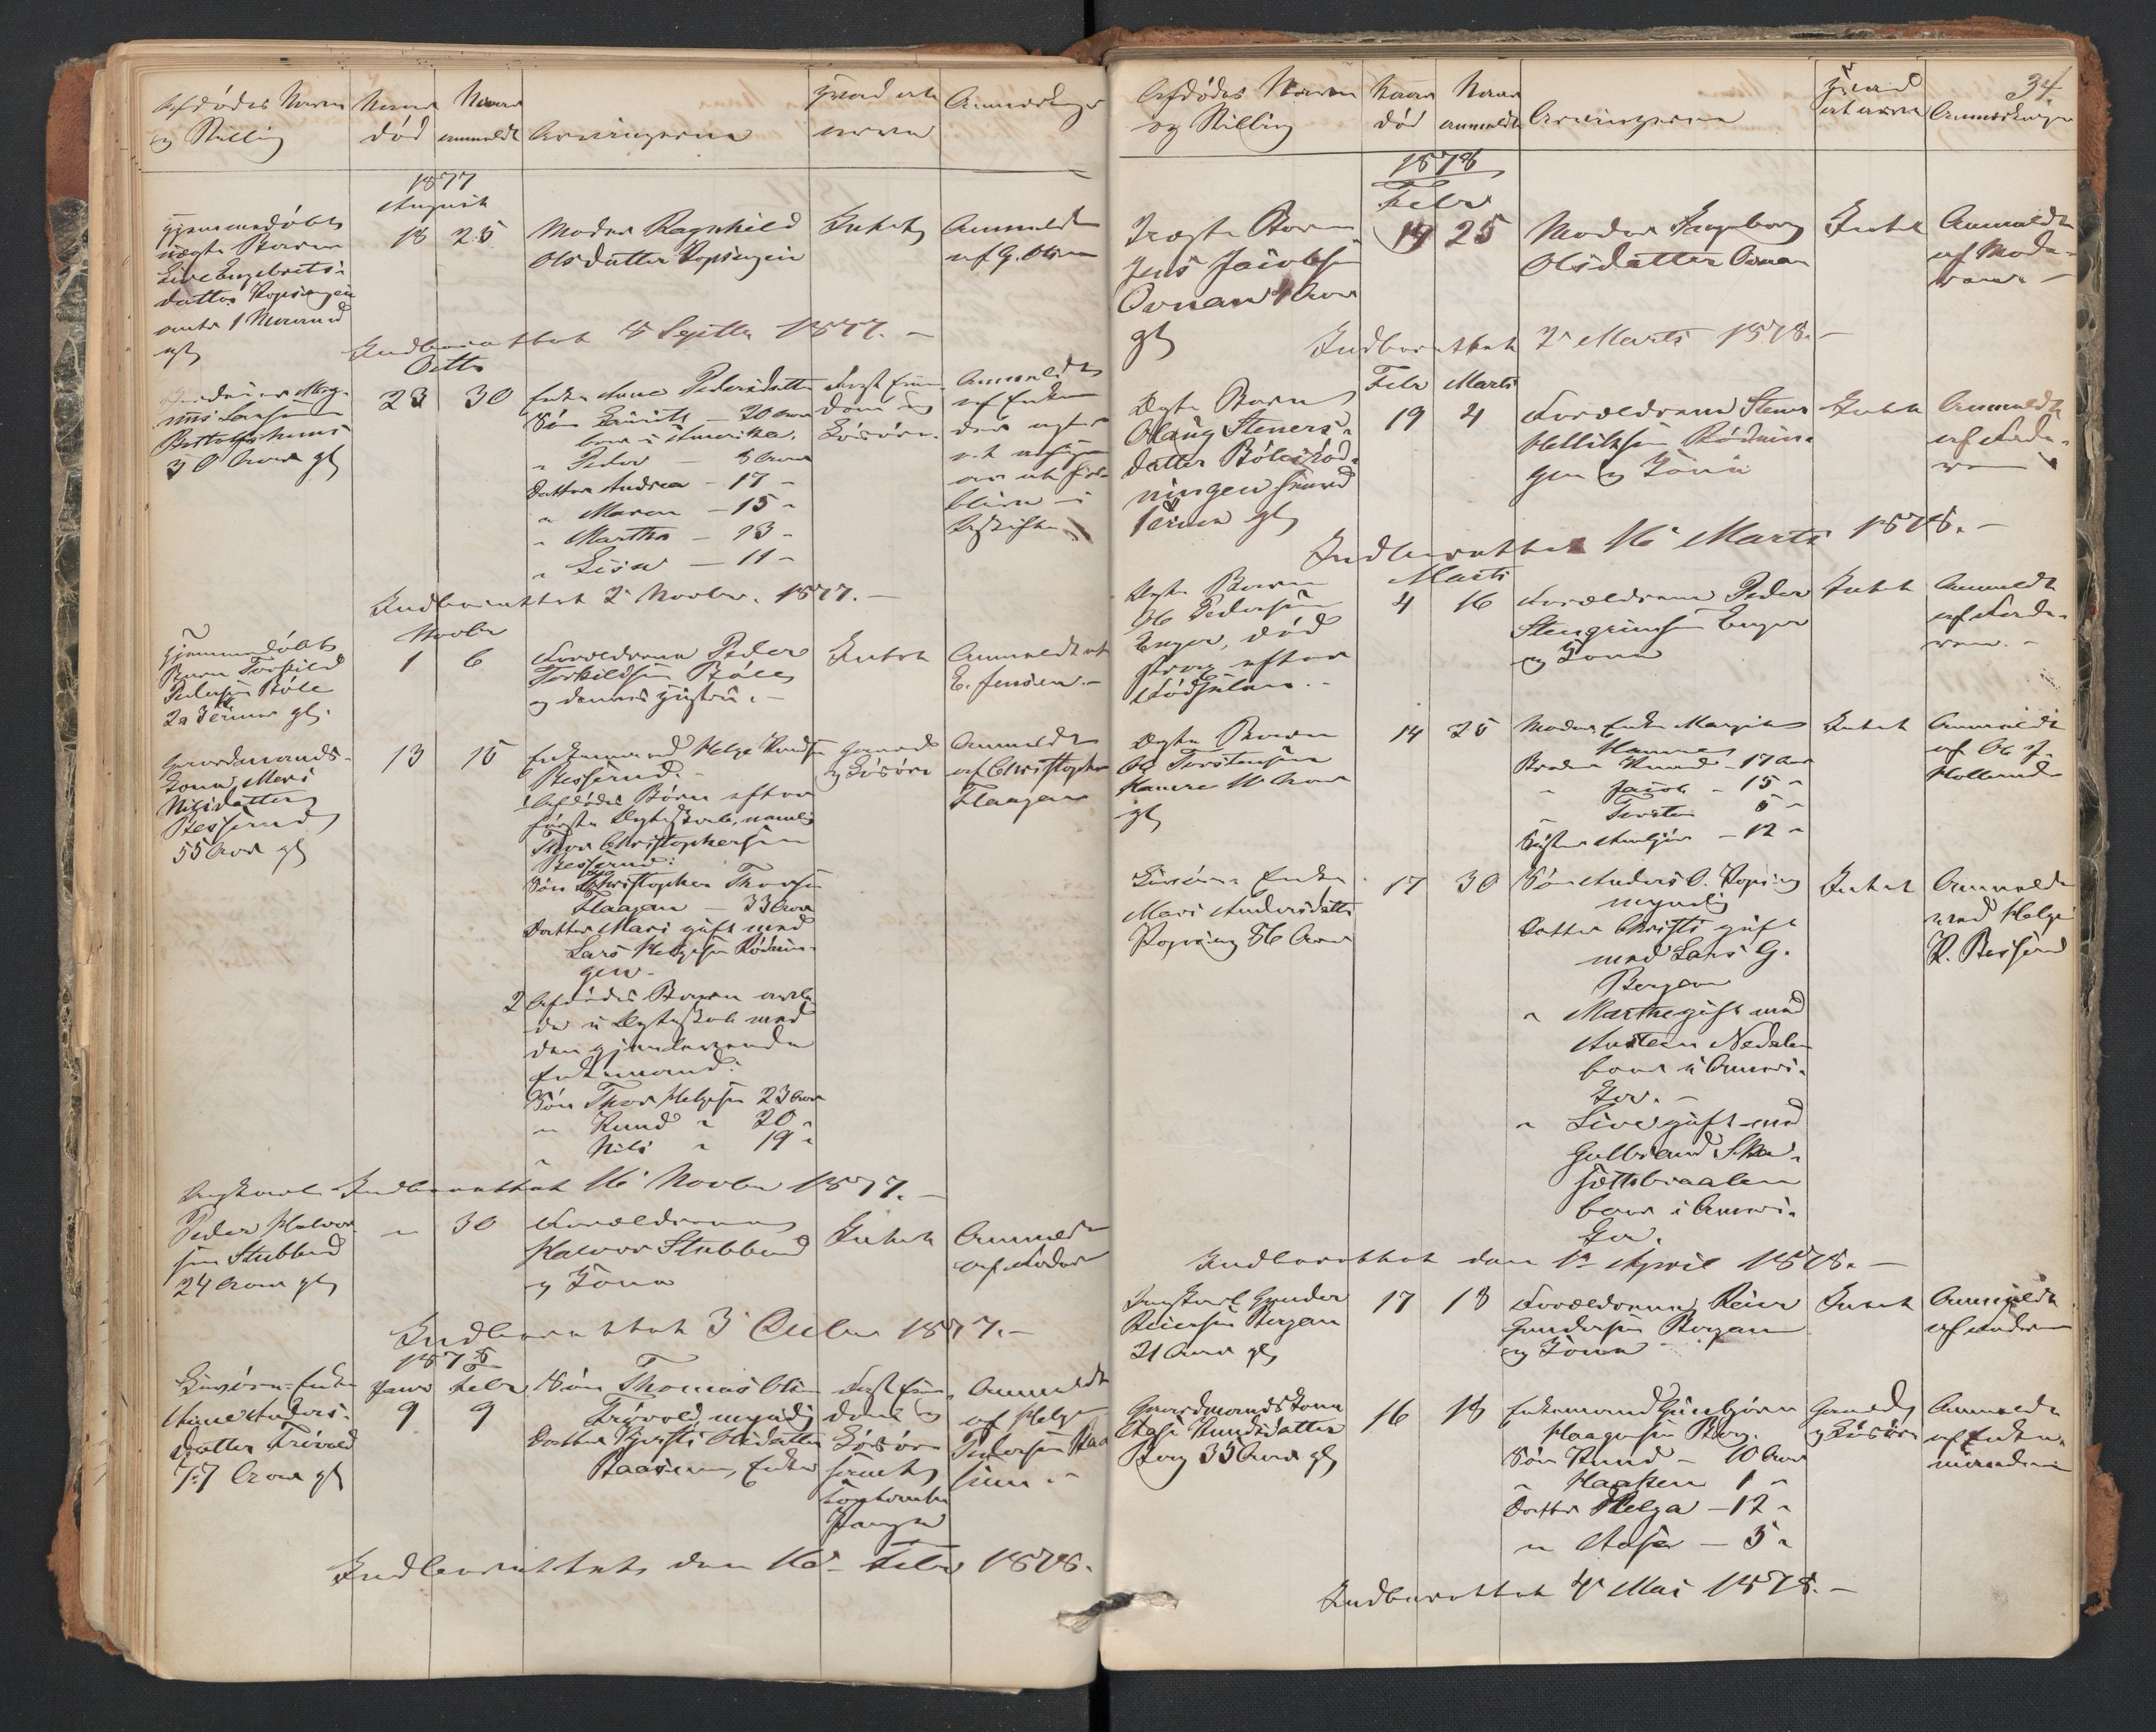 Afdødes Navn
og Stilling
Naar
død
Naar
anmeldt
Arvingerne
Hvad ar
Anmærkninger
1877
August
Hjemmedøbt
uægte Barn
Live Engebrets-
datter Kopsengen
1 Maaned
gl
18
25
Moder Ragnhild
Olsdatter Kopsengen
Intet
Anmeldt
af G. Olsen
Indberettet 4 Septbr 1877. -
Octb
50 Aar gl
23
30
Enke Anne Pedersdatter
Søn Laurits - 20 Aar
bor i Amerika.
" Peder - 8 Aar
Datter Andrea - 17 -
" Maren - 15 "
" Martha - 13 -
" Lisa - 11 -
Løsøre.
Anmeldt
af Enken
Indberettet 2 Novbr. 1877. -
Novbr
Hjemmedøbt
Barn Torkild
Pedersen Bøle
2 a 3 Timer gl.
1
6
Forældrene Peder
Torkildsen Bøle
og dennes Hustru. -
Intet
Anmeldt af
E. Jensen. -
Gaardmands-
Kone Mari
Nilsdatter
Bessrud
55 Aar gl
13
15
Enkemand Helge Knudsen
Bessrud. -
1 Afdødes Børn efter
første Ægteskab, nemlig
Thor Christophersen
Bessrud:
Søn Christopher Thorsen
Flaagan - 33 Aar
Datter Mari gift med
Lars Helgesen Rødnin-
gen. -
2 Afdødes Børn avle-
de i Ægteskab med
den gjenlevende
Enkemand:
Søn Thor Helgesen 23 Aar
" Knud " 20 "
" Nils " 19 "
Gaard
og Løsøre
Anmeldt
af Christopher
Flaagan
Indberettet 16 Novbr 1877. -
Ungkarl
Peder Halvor-
sen Stubberud
24 Aar gl
"
30
Forældrene
Halvor Stubberud
og Kone
Intet
Anmeldt
af Fader
Indberettet 3 Decbr 1877. -
1878
Anne Anders-
datter Trøvold
77 Aar gl
Janr
9
Febr
9
Søn Thomas Olsen
Trøvold, myndig
Datter Kjersti Olsdatter
Raasum, Enke
Løsøre
samt
Penge
Anmeldt
af Helge
Pedersen Raa
sum. -
Indberettet den 16 Febr 1878.
34
Afdødes Navn
og Stilling
Naar
død
Naar
anmeldt
Arvingerne
Hvad
Anmærkninger
1878
Febr
Uægte Barn
Jens Jacobsen
Ovnan 4 Aar
gl
14
25
Moder Ingeborg
Olsdatter Ovnan
Intet
Anmeldt
af Mode-
ren. -
Indberettet 2 Marts 1878. -
Febr Marts
Ægte Barn
Olaug Steners-
datter Bølerød-
ningen
gl
19
4
Forældrene Stener
Helliksen Rødnin-
gen og Kone
Intet
Anmeldt
af Fade-
ren
Indberettet 16 Marts 1878. -
Marts
Ægte Barn
Ole Pedersen
Enger, død
strax efter
Fødselen. -
4
16
Forældrene Peder
Stengrimsen Enger
og Kone
Intet
Anmeldt
af Fade-
ren. -
Ægte Barn
Ole Torstensen
Hamre 11 Aar
gl
14
25
Moder, Enke Margit
Hamre
Broder Knud - 17 Aar
" Jacob - 15 "
" Torsten 6 "
Søster - 12 "
Intet
Anmeldt
af Ole J.
Hollerud
Enke
Mari Andersdatter
Kopseng 86 Aar
17
30
Søn Anders O. Kopseng
myndig
Datter Christi gift
med Lars G.
Bergan
" Marthe gift med
Austen Nedalen
bor i Ameri-
ka. -
" Live gift med
Gulbrand Ska-
settbraaten
bor i Ameri-
ka.
Intet
Anmeldt
ved Helge
K. Bessrud
Indberettet den 1 April 1878. -
Ungkarl Gunder
Reiersen Bergan
21 Aar gl
17
18
Forældrene Reier
Gundersen Bergan
og Kone -
Intet
Anmeldt
af Faderen
Gaardmandskone
Aase Knudsdatter
Berg 35 Aar gl
16
18
Enkemand Gunbjørn
Haagensen Berg.
Søn Knud - 10 Aar
" Haaken 1 "
Datter Helga - 12 "
" Aase - 5 "
Gaard
og Løsøre
Anmeldt
af Enke-
manden
Indberettet 4 Mai 1878. -